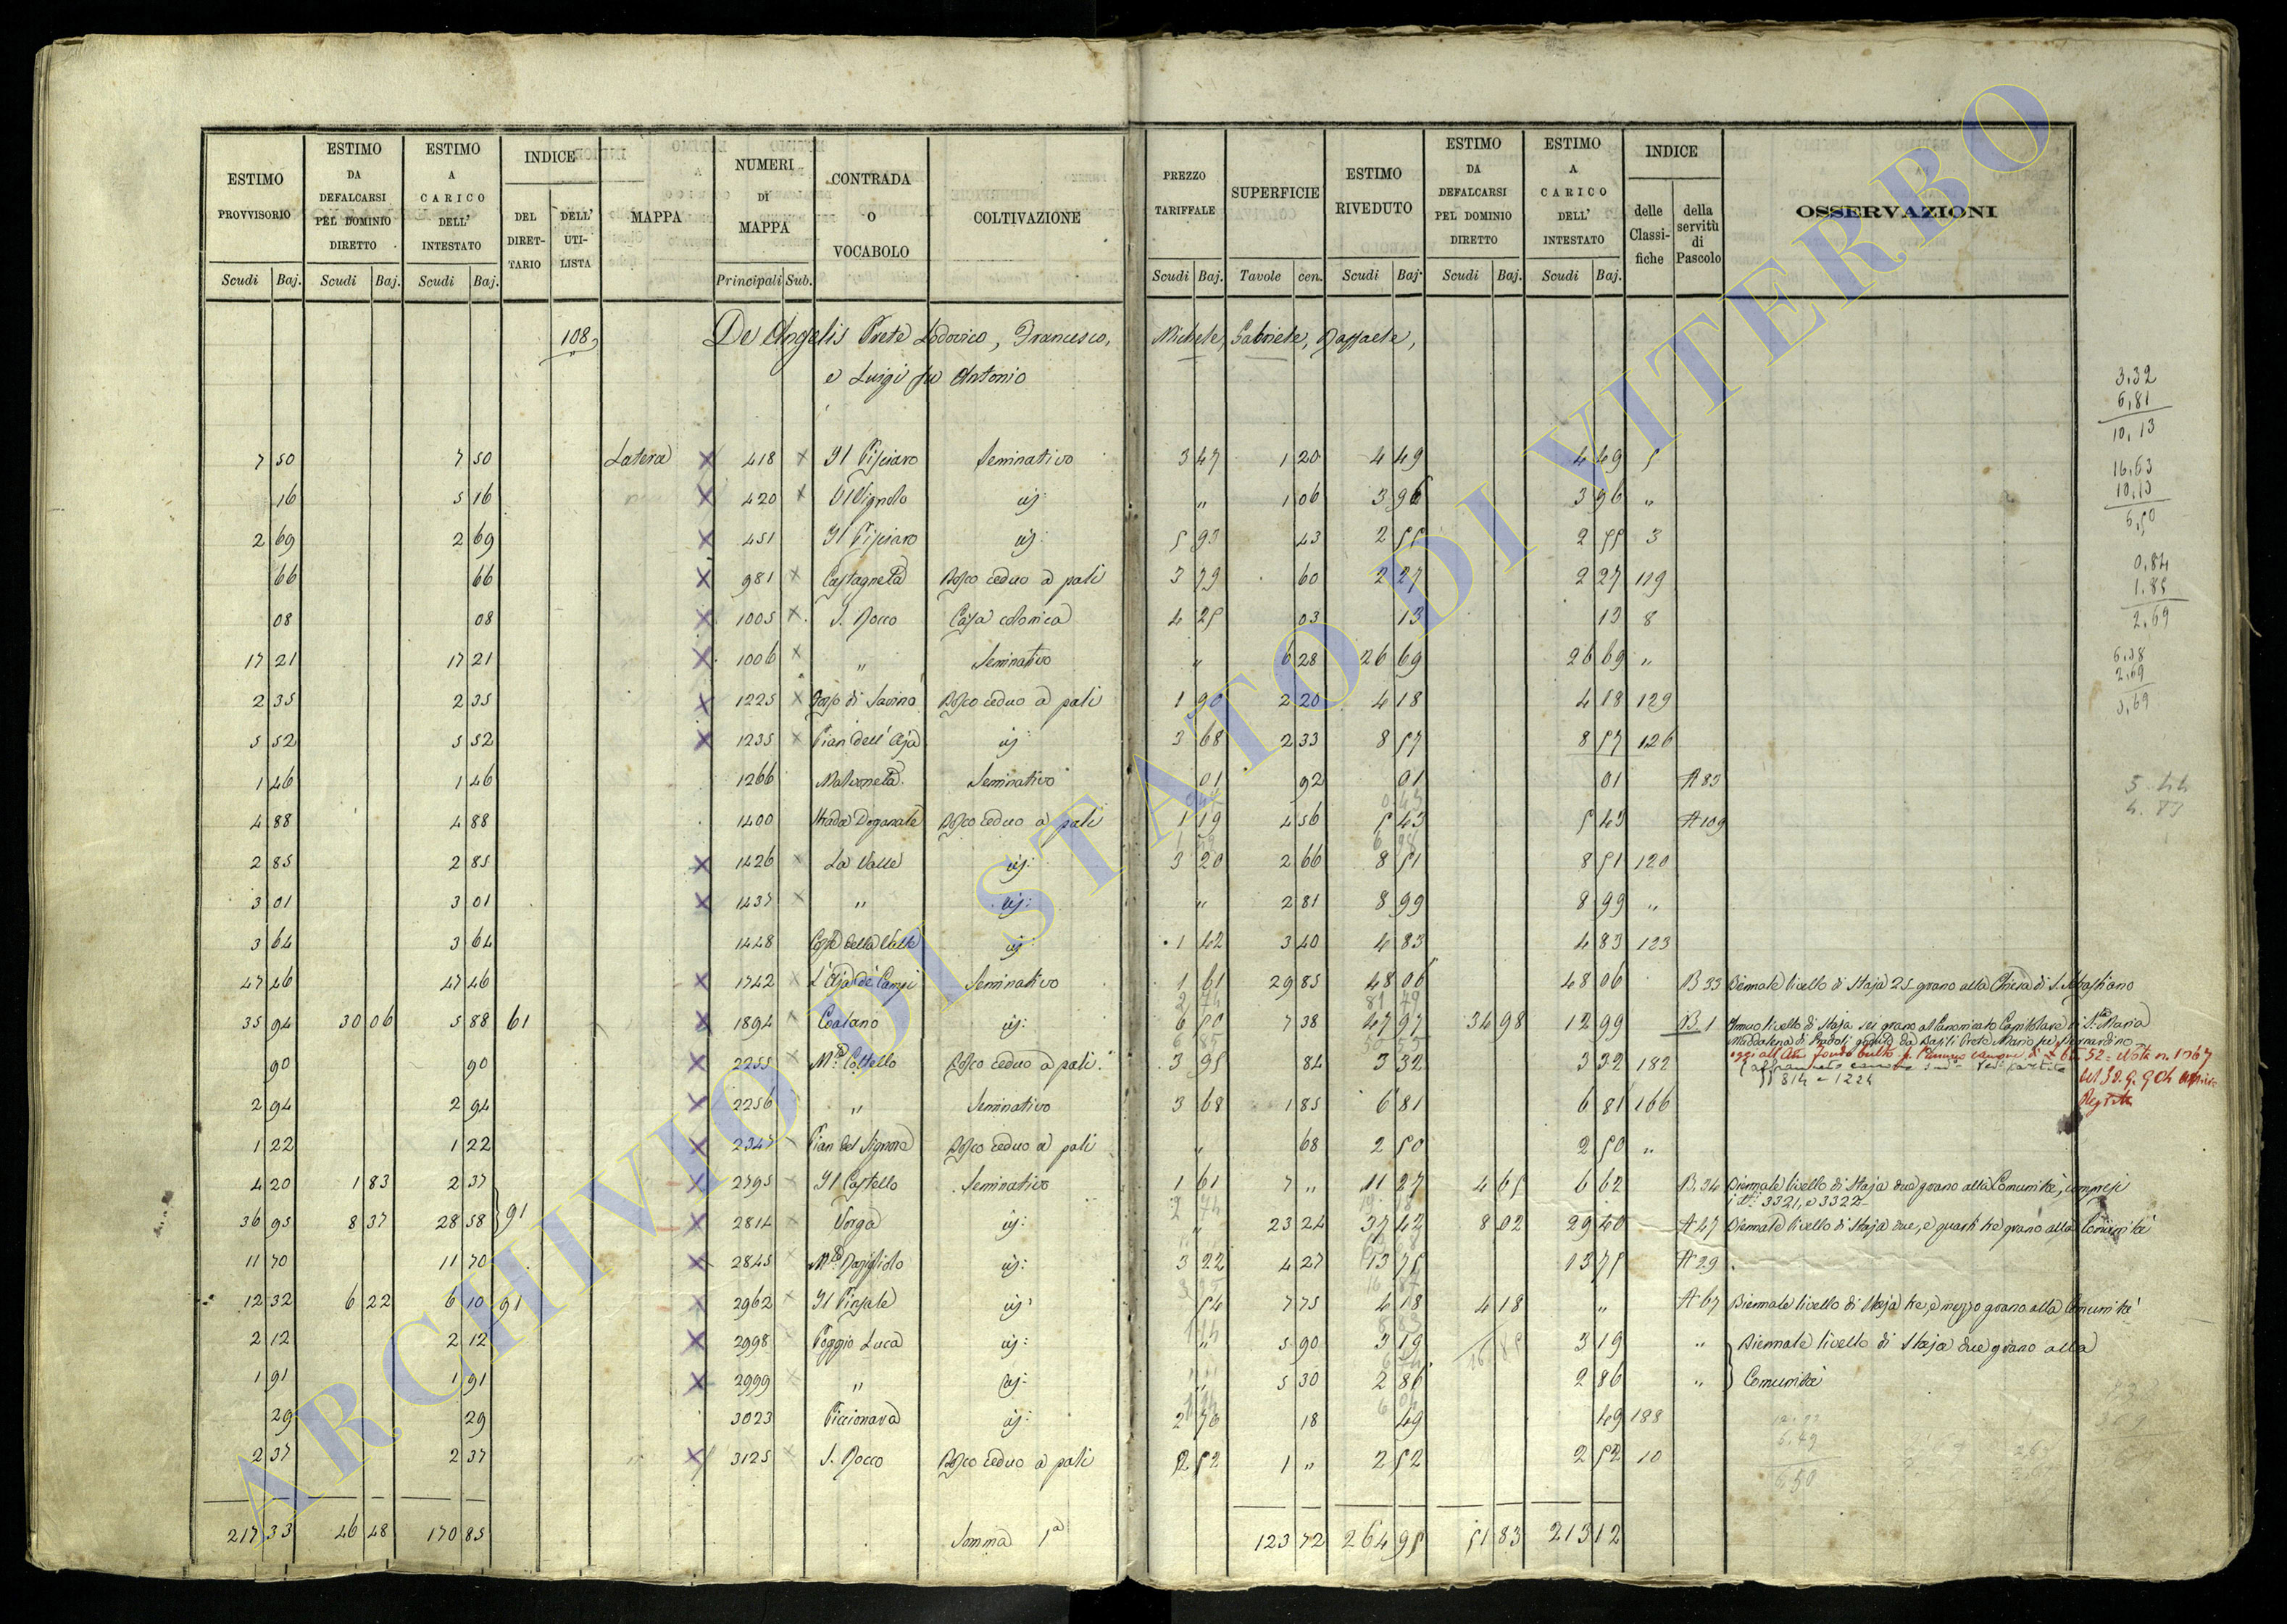 ESTIMO PROVVISORIO | ESTIMO DA DEFALCARSI PEL DOMINIO DIRETTO | ESTIMO A CARICO DELL' INTESTATO | INDICE DEL DIRETTARIO | DELL' UTILISTA | MAPPA | NUMERI DI MAPPA | CONTRADA O VOCABOLO | COLTIVAZIONE | PREZZO TARIFFALE | SUPERFICIE | ESTIMO RIVEDUTO | ESTIMO DA DEFALCARSI PEL DOMINIO DIRETTO | ESTIMO A CARICO DELL' INTESTATO | INDICE delle Classifiche | della servitù di Pascolo | OSSERVAZIONI
Scudi Baj. | Scudi Baj. | Scudi Baj. | Principali Sub. | Scudi Baj. | Tavole cen. | Scudi Baj | Scudi Baj. | Scudi Baj.
108 De Angelis Prete Lodovico, Francesco, Michele, Gabriele, Raffaele,
e Luigi fu Antonio
7 50 | 7 50 | Latera | 418 | Il Pisciaro | Seminativo | 3 47 | 1 20 | 4 49 | 4 49 | 5
16 | 5 16 | 420 | Il Vignolo | id: | " | 1 06 | 3 96 | 3 96 | "
2 69 | 2 69 | 451 | Il Pisciaro | id: | 5 93 | 43 | 2 55 | 2 55 | 3
66 | 66 | 981 | Castagneta | Bosco ceduo a pali | 3 79 | 60 | 2 27 | 2 27 | 119
08 | 08 | 1005 | S. Rocco | Casa colonica | 4 25 | 03 | 13 | 13 | 8
17 21 | 17 21 | 1006 | " | Seminativo | " | 6 28 | 26 69 | 26 69 | "
2 35 | 2 35 | 1225 | Fosso di Savino | Bosco ceduo a pali | 1 90 | 2 20 | 4 18 | 4 18 | 129
5 52 | 5 52 | 1235 | Pian dell' Aja | id: | 3 68 | 2 33 | 8 57 | 8 57 | 126
1 46 | 1 46 | 1266 | Malvoneta | Seminativo | 01 | 92 | 01 | 01 | A 83
4 88 | 4 88 | 1400 | Strada Doganale | Bosco ceduo a pali | 1 19 | 4 56 | 5 43 | 5 43 | A 109
2 85 | 2 85 | 1426 | La Valle | id: | 3 20 | 2 66 | 8 51 | 8 51 | 120
3 01 | 3 01 | 1437 | " | id: | " | 2 81 | 8 99 | 8 99 | "
3 64 | 3 64 | 1448 | Coste della Valle | id: | 1 42 | 3 40 | 4 83 | 4 83 | 123
47 46 | 47 46 | 1742 | L'Aja de' Campi | Seminativo | 1 61 | 29 85 | 48 06 | 48 06 | B 33 | Biennale livello di Staja 25 grano alla Chiesa di S. Sebastiano
35 94 | 30 06 | 5 88 | 61 | 1894 | id: | 6 50 | 7 38 | 47 97 | 34 98 | 12 99 | B 1 | Annuo livello di Staja sei grano al Canonicato Capitolare di S. Maria
Maddalena di Gradoli goduto da Prete Mario fu Bernardino
90 | 90 | 2255 | Coltello | Bosco ceduo a pali | 3 95 | 84 | 3 32 | 3 32 | 182
2 94 | 2 94 | 2256 | " | Seminativo | 3 68 | 1 85 | 6 81 | 6 81 | 166
1 22 | 1 22 | 2347 | Pian del Signore | Bosco ceduo a pali | " | 68 | 2 50 | 2 50 | "
4 20 | 1 83 | 2 37 | 2795 | Il Castello | Seminativo | 1 61 | 7 " | 11 27 | 4 65 | 6 62 | B. 34 | Biennale livello di Staja due grano alla Comunità, compresi
i Ni. 3321, e 3322
36 95 | 8 37 | 28 58 | 91 | 2814 | Vorga | id: | " | 23 24 | 37 42 | 8 02 | 29 40 | A 47 | Biennale livello di Staja due, e quarti tre grano alla Comunità
11 70 | 11 70 | 2845 | id: | 3 22 | 4 27 | 13 75 | 13 75 | A 29
12 32 | 6 22 | 6 10 | 91 | 2962 | Il Pinzale | id: | 54 | 7 75 | 4 18 | 4 18 | " | A 67 | Biennale livello di Staja tre, e mezzo grano alla Comunità
2 12 | 2 12 | 2998 | Poggio Luca | id: | " | 5 90 | 3 19 | 3 19 | " | Biennale livello di Staja due grano alla
1 91 | 1 91 | 2999 | " | id: | " | 5 30 | 2 86 | 2 86 | " | Comunità
29 | 29 | 3023 | Piccionara | id: | 2 70 | 18 | 49 | 49 | 188
2 37 | 2 37 | 3125 | S. Rocco | Bosco ceduo a pali | 2 52 | 1 " | 2 52 | 2 52 | 10
217 33 | 46 48 | 170 85 | Somma 1a | 123 72 | 264 95 | 51 83 | 213 12
3,32
6,81
10,13
16,63
10,13
6,50
0,84
1.85
2,69
6,38
2,69
3,69
ARCHIVIO DI STATO DI VITERBO